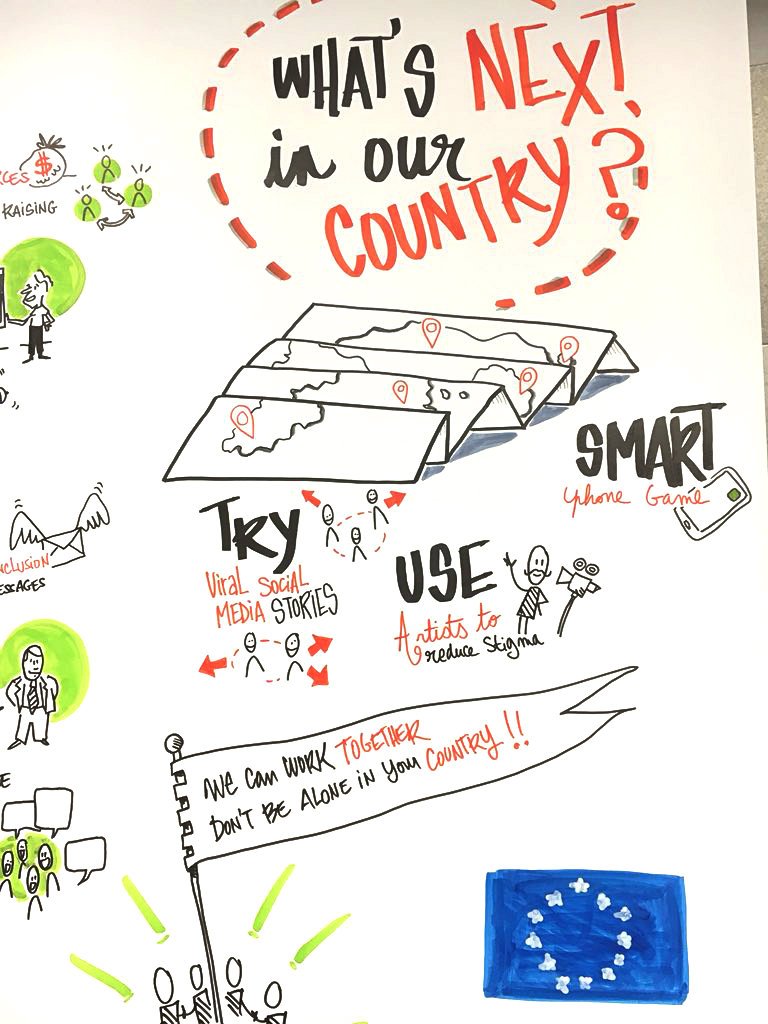 WHAT'S NEXT
in our
COUNTRY?
$
RAISING
SMART
yphone Game
TRY
Viral SOCIAL
MEDIA STORIES
USE
Artists to
reduce Stigma
WE CAN WORK TOGETHER
DON'T BE ALONE IN YOUR COUNTRY!!